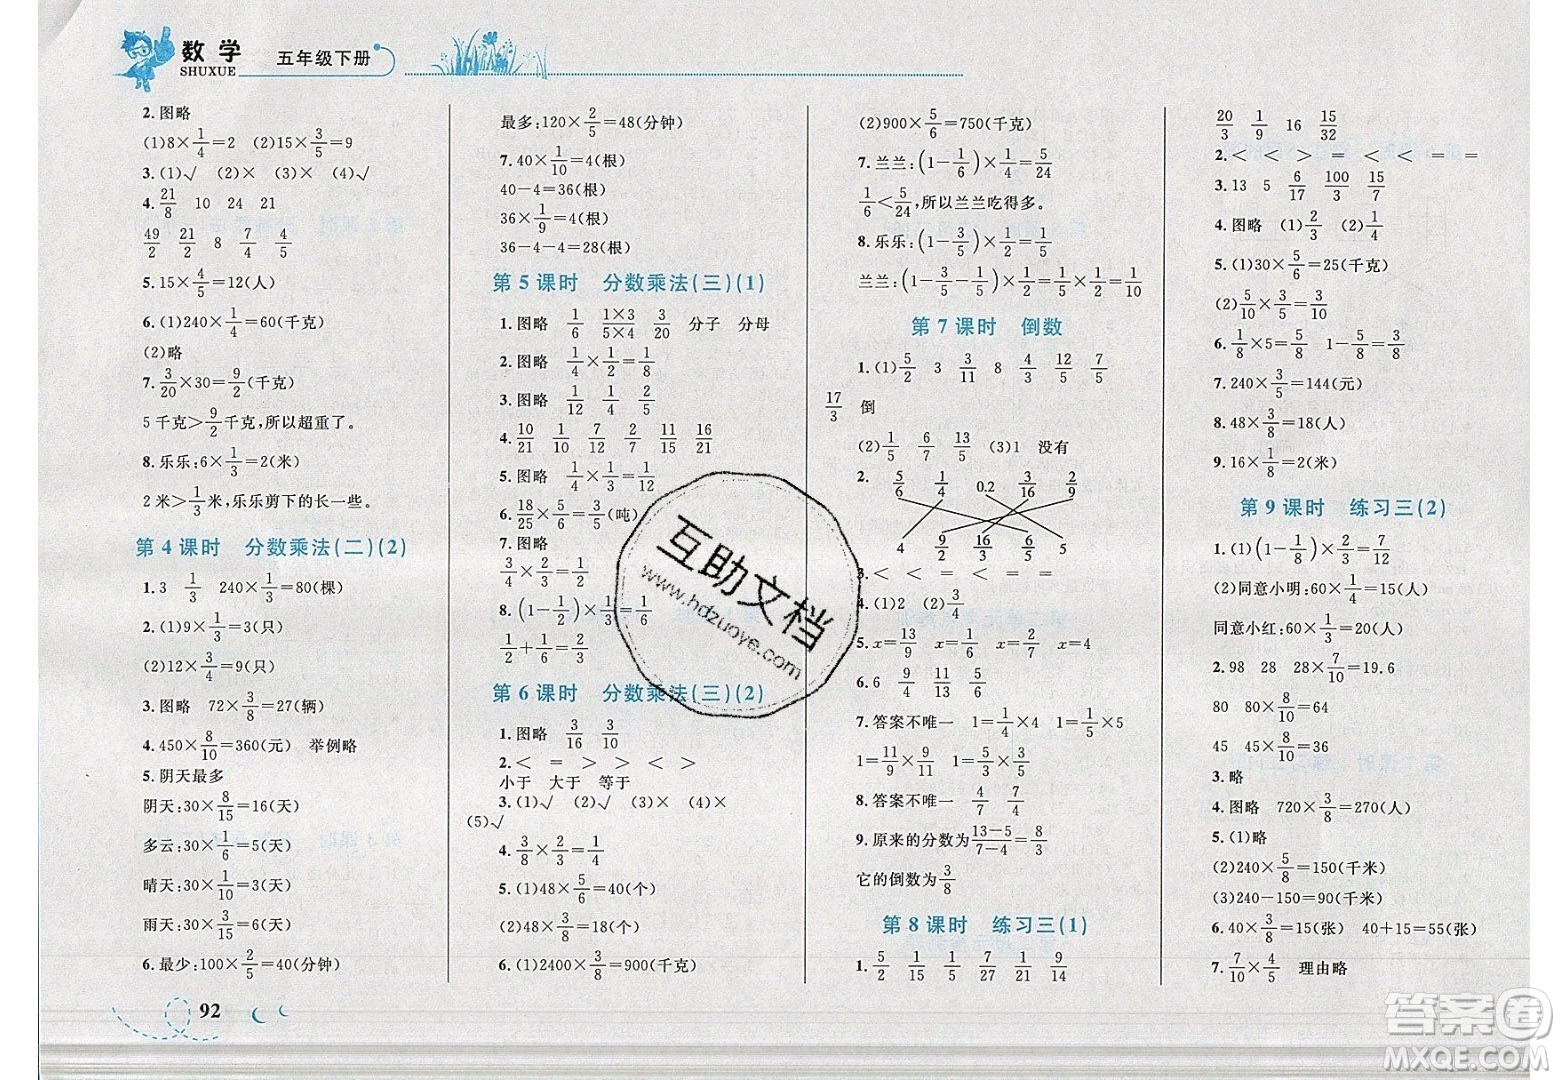 数学
SHUXUE
五年级下册
2.图略
(1)8×1/4=2 (2)15×3/5=9
3.(1)√ (2)× (3)× (4)√
4.21/8 10 24 21
49/2 21/2 8 7/4 4/5
5.15×4/5=12(人)
6.(1)240×1/4=60(千克)
(2)略
7.3/20×30=9/2(千克)
5千克>9/2千克,所以超重了。
8.乐乐:6×1/3=2(米)
2米>1/3米,乐乐剪下的长一些。
第4课时 分数乘法(二)(2)
1.3 1/3 240×1/3=80(棵)
2.(1)9×1/3=3(只)
(2)12×3/4=9(只)
3.图略 72×3/8=27(辆)
4.450×8/10=360(元) 举例略
5.阴天最多
阴天:30×8/15=16(天)
多云:30×1/6=5(天)
晴天:30×1/10=3(天)
雨天:30×3/15=6(天)
6.最少:100×2/5=40(分钟)
最多:120×2/5=48(分钟)
7.40×1/10=4(根)
40-4=36(根)
36×1/9=4(根)
36-4-4=28(根)
第5课时 分数乘法(三)(1)
1.图略 1/6 1×3/5×4 3/20 分子 分母
2.图略 1/4×1/2=1/8
3.图略 1/12 1/4 2/5
4.10/21 1/10 7/12 2/7 11/15 16/21
5.图略 1/4×1/5=
6.18/25×5/6=3/5(吨)
7.图略
3/4×2/3=1/2
8.(1-1/2)×1/3=1/6
1/2+1/6=2/3
第6课时 分数乘法(三)(2)
1.图略 3/16 3/10
2.< = > < >
小于 大于 等于
3.(1)√ (2)√ (3)× (4)×
(5)√
4.3/8×2/3=1/4
5.(1)48×5/6=40(个)
(2)48×3/8=18(个)
6.(1)2400×3/8=900(千克)
(2)900×5/6=750(千克)
7.兰兰:(1-1/6)×1/4=5/24
1/6<5/24,所以兰兰吃得多。
8.乐乐:(1-3/5)×1/2=1/5
兰兰:(1-3/5-1/5)×1/2=1/5×1/2=1/10
第7课时 倒数
1.(1)5/2 3 3/11 8 4/3 12/5 7/5
17/3 倒
(2)1/5 6/7 13/5 (3)1 没有
2. 5/6 1/4 0.2 3/16 2/9
4 9/2 16/3 6/5 5
3.< < = < = =
4.(1)2 (2)3/4
5.x=13/9 x=1/6 x=4
6.6 9/4 9/4
7.答案不唯一 1=1/4×4 1=1/5×5
1=11/9×9/11 1=5/2×2/5
8.答案不唯一 4/7 7/4
9.原来的分数为13-5/7-4=8/3
它的倒数为3/8
第8课时 练习三(1)
1.5/2 1/15 1/5 7/27 1/21 9/14
20/3 1/9 16 15/32
2.< < > = < < = =
3.13 5 6/17 100/3 15/7
4.图略 (1)2/3 (2)1/3
5.(1)30×5/6=25(千克)
(2)5/10×3/5=3/10
6.1/8×5=5/8 1-5/8=3/8
7.240×3/5=144(元)
8.48×3/8=18(人)
9.16×1/8=2(米)
第9课时 练习三(2)
1.(1)(1-1/8)×2/3=7/12
(2)同意小明:60×1/4=15(人)
同意小红:60×1/3=20(人)
2.98 28 28×7/10=19.6
80 80×8/10=64
45 45×8/10=36
3.略
4.图略 720×3/8=270(人)
5.(1)略
(2)240×5/8=150(千米)
(3)240-150=90(千米)
6.40×3/8=15(张) 40+15=55(张)
7.7/10×4/5 理由略
92
互助文档
www.hdzuoye.com
答案圈
MXQE.COM